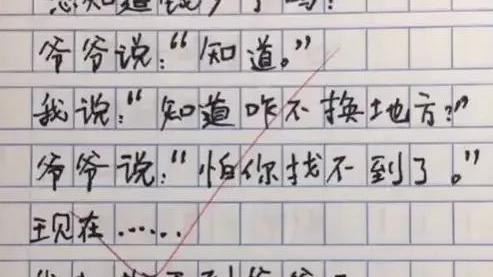 您知道钱少了吗？
爷爷说：“知道。”
我说：“知道咋不换地方？”
爷爷说：“怕你找不到了。”
现在……